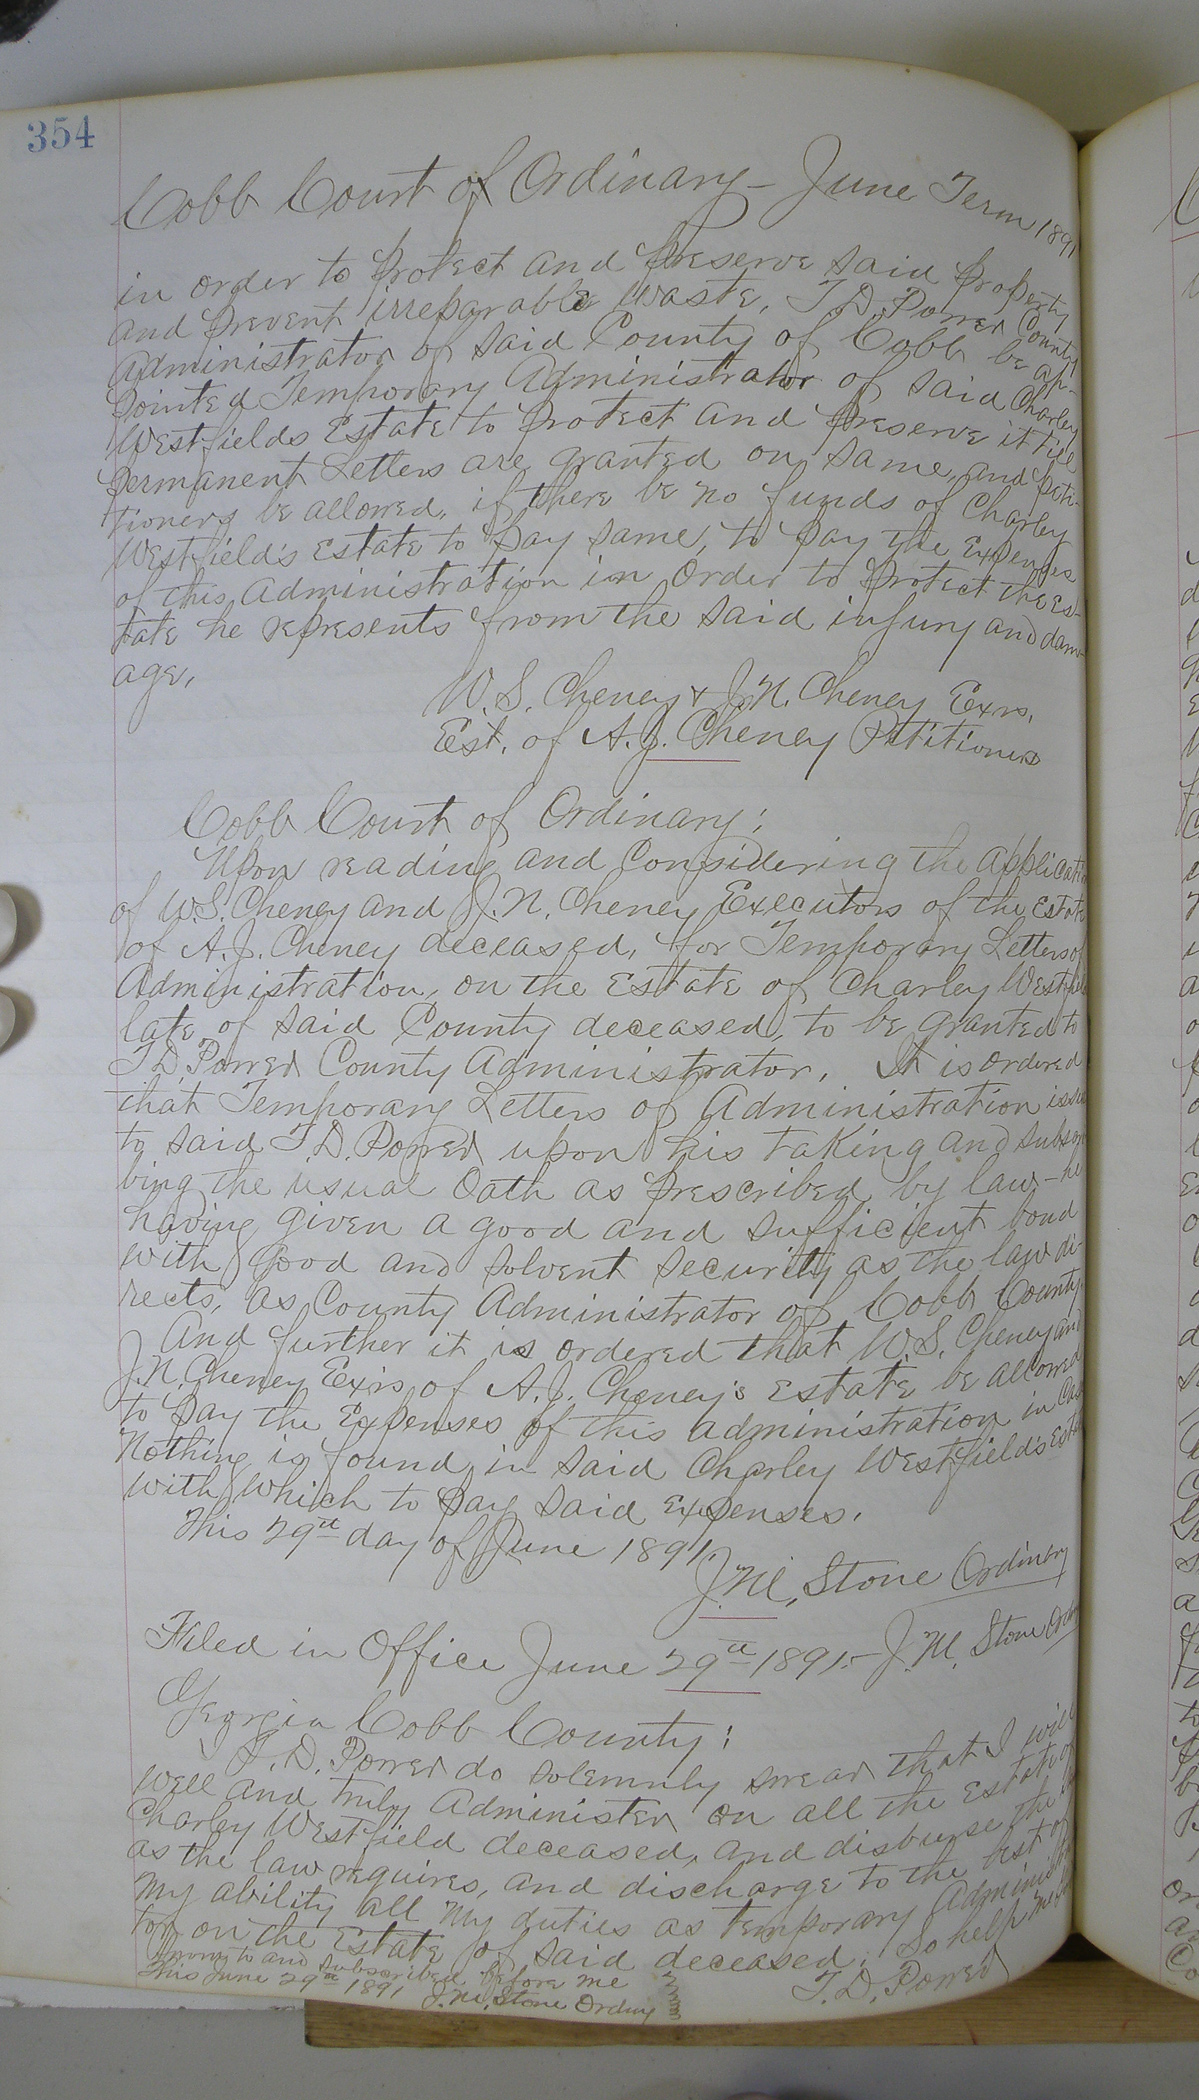 354
Cobb Court of Ordinary - June Term 1891
in order to protect and preserve said property
and prevent irreparable waste, T. D. Power County
Administrator of said County of Cobb be ap-
pointed Temporary Administrator of said Charley
Westfields Estate to protect and preserve it till
permanent Letters are granted on same, and peti-
tioners be allowed, if there be no funds of Charley
Westfield's Estate to pay same, to pay the Expenses
of this Administration in order to protect the es-
tate he represents from the said injury and dam-
age,
W. S. Cheney & J. N. Cheney Exrs,
Est. of A. J. Cheney Petitioners
Cobb Court of Ordinary;
Upon reading and considering the Applicati
of W. S. Cheney and J. N. Cheney Executors of the Estate
of A. J. Cheney deceased, for Temporary Letters of
Administration, on the Estate of Charley Westfiel
late of said County deceased, to be granted to
T. D. Power County Administrator, It is ordered
that Temporary Letters of Administration issue
to said T. D. Power upon his taking and subscri
bing the usual Oath as prescribed by law - he
having given a good and sufficient bond
with good and solvent security as the law di-
rects, as County Administrator of Cobb County.
And further it is ordered that W. S. Cheney and
J. N. Cheney Exrs of A. J. Cheney's Estate be allowed
to pay the Expenses of this administration in Case
Nothing is found in said Charley Westfield's Estate
with which to pay said Expenses.
This 29th day of June 1891.
J. M. Stone Ordinary
Filed in Office June 29th 1891.- J. M. Stone Ordy
Georgia Cobb County;
I, T. D. Power do solemnly swear that I will
well and truly Administer on all the Estate of
Charley Westfield deceased, and disburse the
as the law requires, and discharge to the best of
my ability all my duties as temporary Administra
tor on the Estate of said deceased. So help me
Sworn to and subscribed before me
This June 29th 1891 J. M. Stone Ordny
T. D. Power